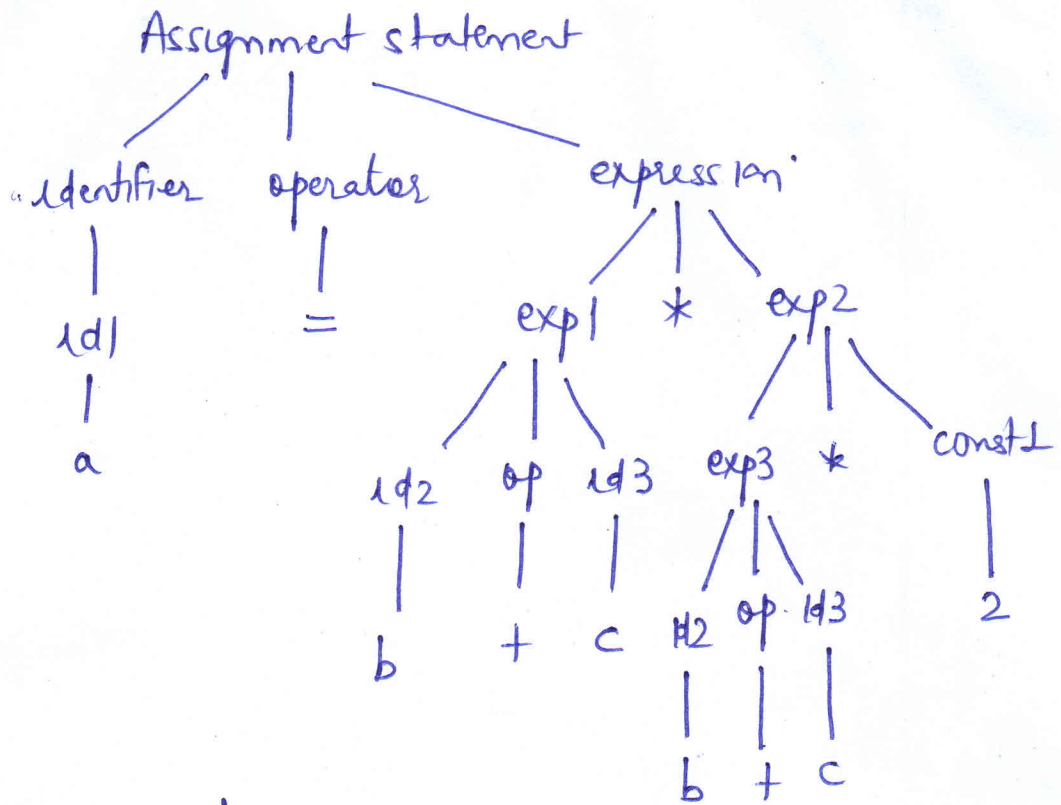 Assignment statement
identifier operator expression
id1 = exp1 * exp2
a id2 op id3 exp3 * const1
b + c id2 op id3 2
b + c